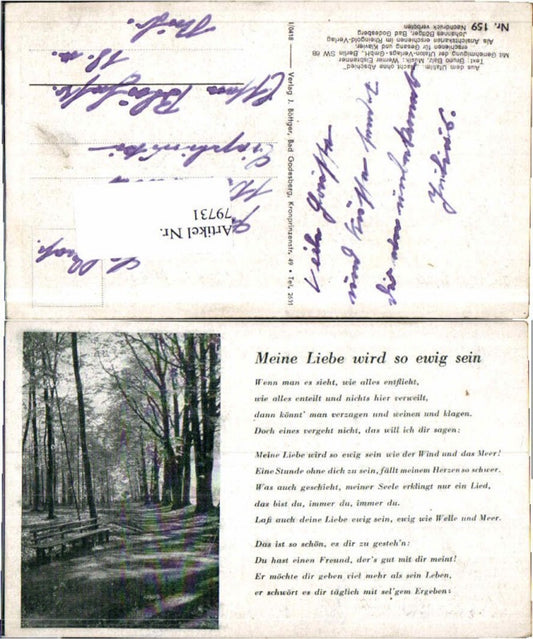 Nr. 159
Aus dem Ufafilm „Nacht ohne Abschied“
Text: Bruno Balz, Musik: Werner Eisbrenner
Mit Genehmigung der Ufaton-Verlags-GmbH., Berlin SW 68
erschienen für Gesang und Klavier.
Als Ansichtskarten erschienen im Rheingold-Verlag
Johannes Böttger, Bad Godesberg
Nachdruck verboten
I/0418 Verlag J. Böttger, Bad Godesberg, Kronprinzenstr. 49 • Tel. 2691
Viele Grüße
und Küsse
Artikel Nr.
79731
Meine Liebe wird so ewig sein
Wenn man es sieht, wie alles entflieht,
wie alles enteilt und nichts hier verweilt,
dann könnt' man verzagen und weinen und klagen.
Doch eines vergeht nicht, das will ich dir sagen:
Meine Liebe wird so ewig sein wie der Wind und das Meer!
Eine Stunde ohne dich zu sein, fällt meinem Herzen so schwer.
Was auch geschieht, meiner Seele erklingt nur ein Lied,
das bist du, immer du, immer du.
Laß auch deine Liebe ewig sein, ewig wie Welle und Meer.
Das ist so schön, es dir zu gesteh'n:
Du hast einen Freund, der's gut mit dir meint!
Er möchte dir geben viel mehr als sein Leben,
er schwört es dir täglich mit sel'gem Ergeben: